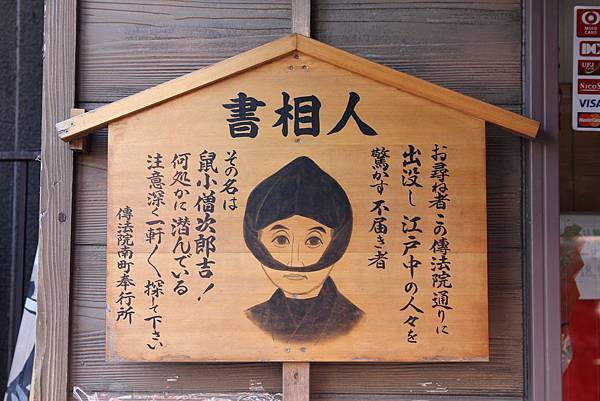 人相書
お尋ね者この傳法院通りに
出没し江戸中の人々を
驚かす不届き者
その名は
鼠小僧次郎吉！
何処かに潜んでいる
注意深く一軒〱探して下さい
傳法院南町奉行所
MUFG CARD
DC
UFJ
NICOS
VISA
MasterCard